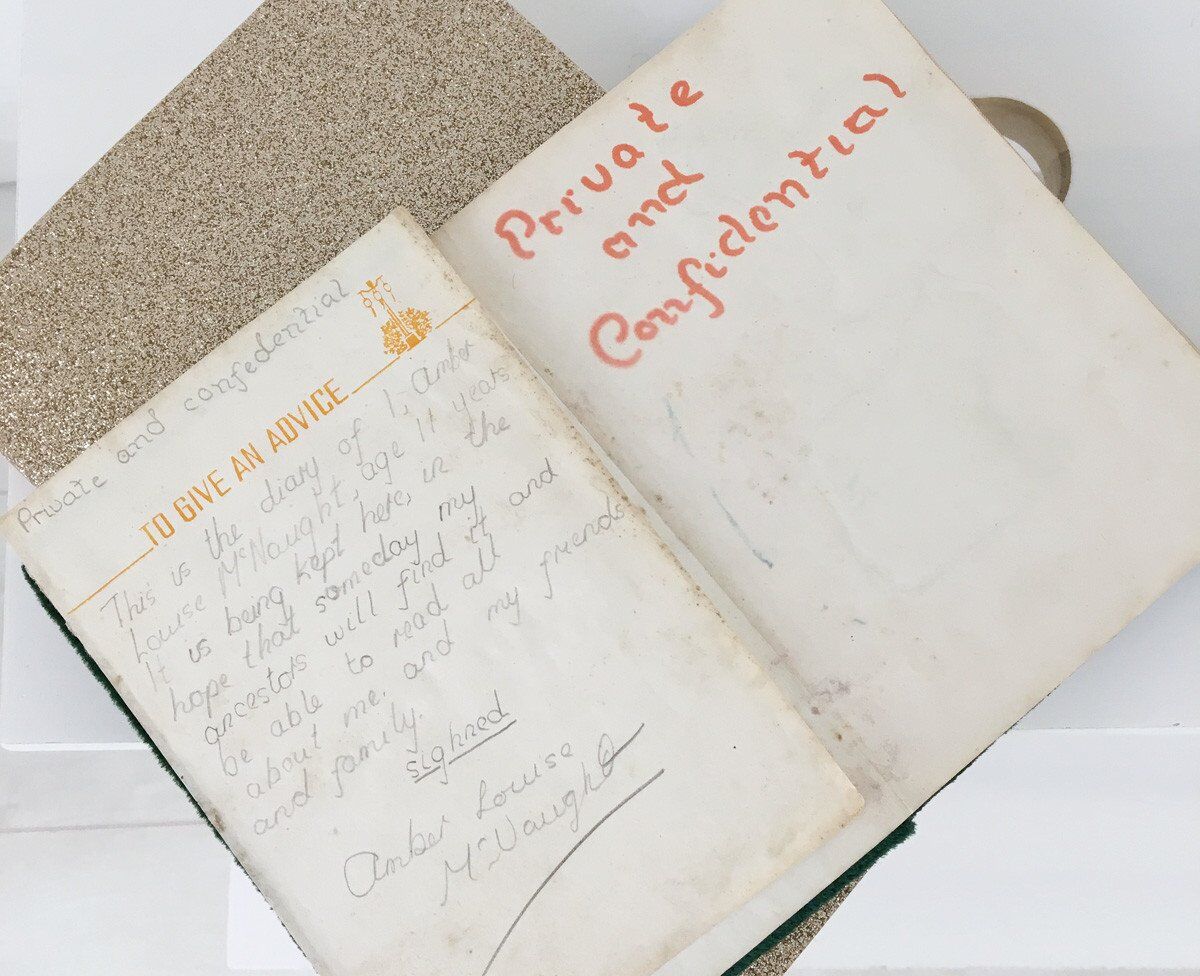 Private and confedential
TO GIVE AN ADVICE
This is the diary of I, Amber
Louise McNaught, age 11 years
It is being kept here, in the
hope that someday my
ancestors will find it and
be able to read all
about me. and my friends
and family.
sighned
Amber Louise
McNaught
Private
and
Confidential